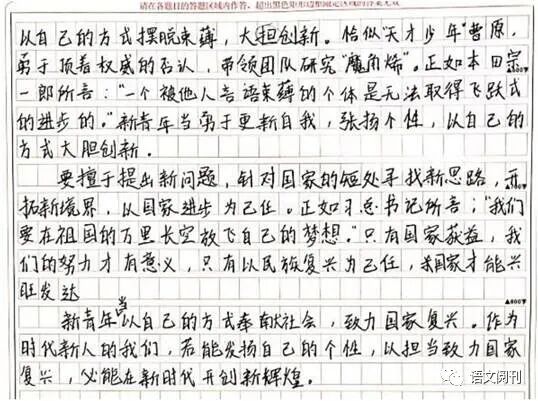 请在各题目的答题区域内作答,超出黑色矩形边框限定区域的答案无效
以自己的方式摆脱束薄,大担创新。恰似"天才少年"曹原,
勇于顶着权威的否认,带领团队研究"魔角烯"。正如本田宗
一郎所言:"一个被他人言语束薄的个体是无法取得飞跃式
的进步的。"新青年当勇于更新自我,张扬个性,以自己的
方式大胆创新。
要擅于提出新问题,针对国家的短处寻找新思路,开
拓新境界,以国家进步为己任。正如习总书记所言:"我们
要在祖国的万里长空放飞自己的梦想。"只有国家获益,我
们的努力才有意义,只有以民族复兴为己任,国家才能兴
旺发达
▲800字
新青年当以自己的方式奉献社会,致力国家复兴。作为
时代新人的我们,若能发扬自己的个性,以担当致力国家
复兴,必能在新时代开创新辉煌。
语文阅刊